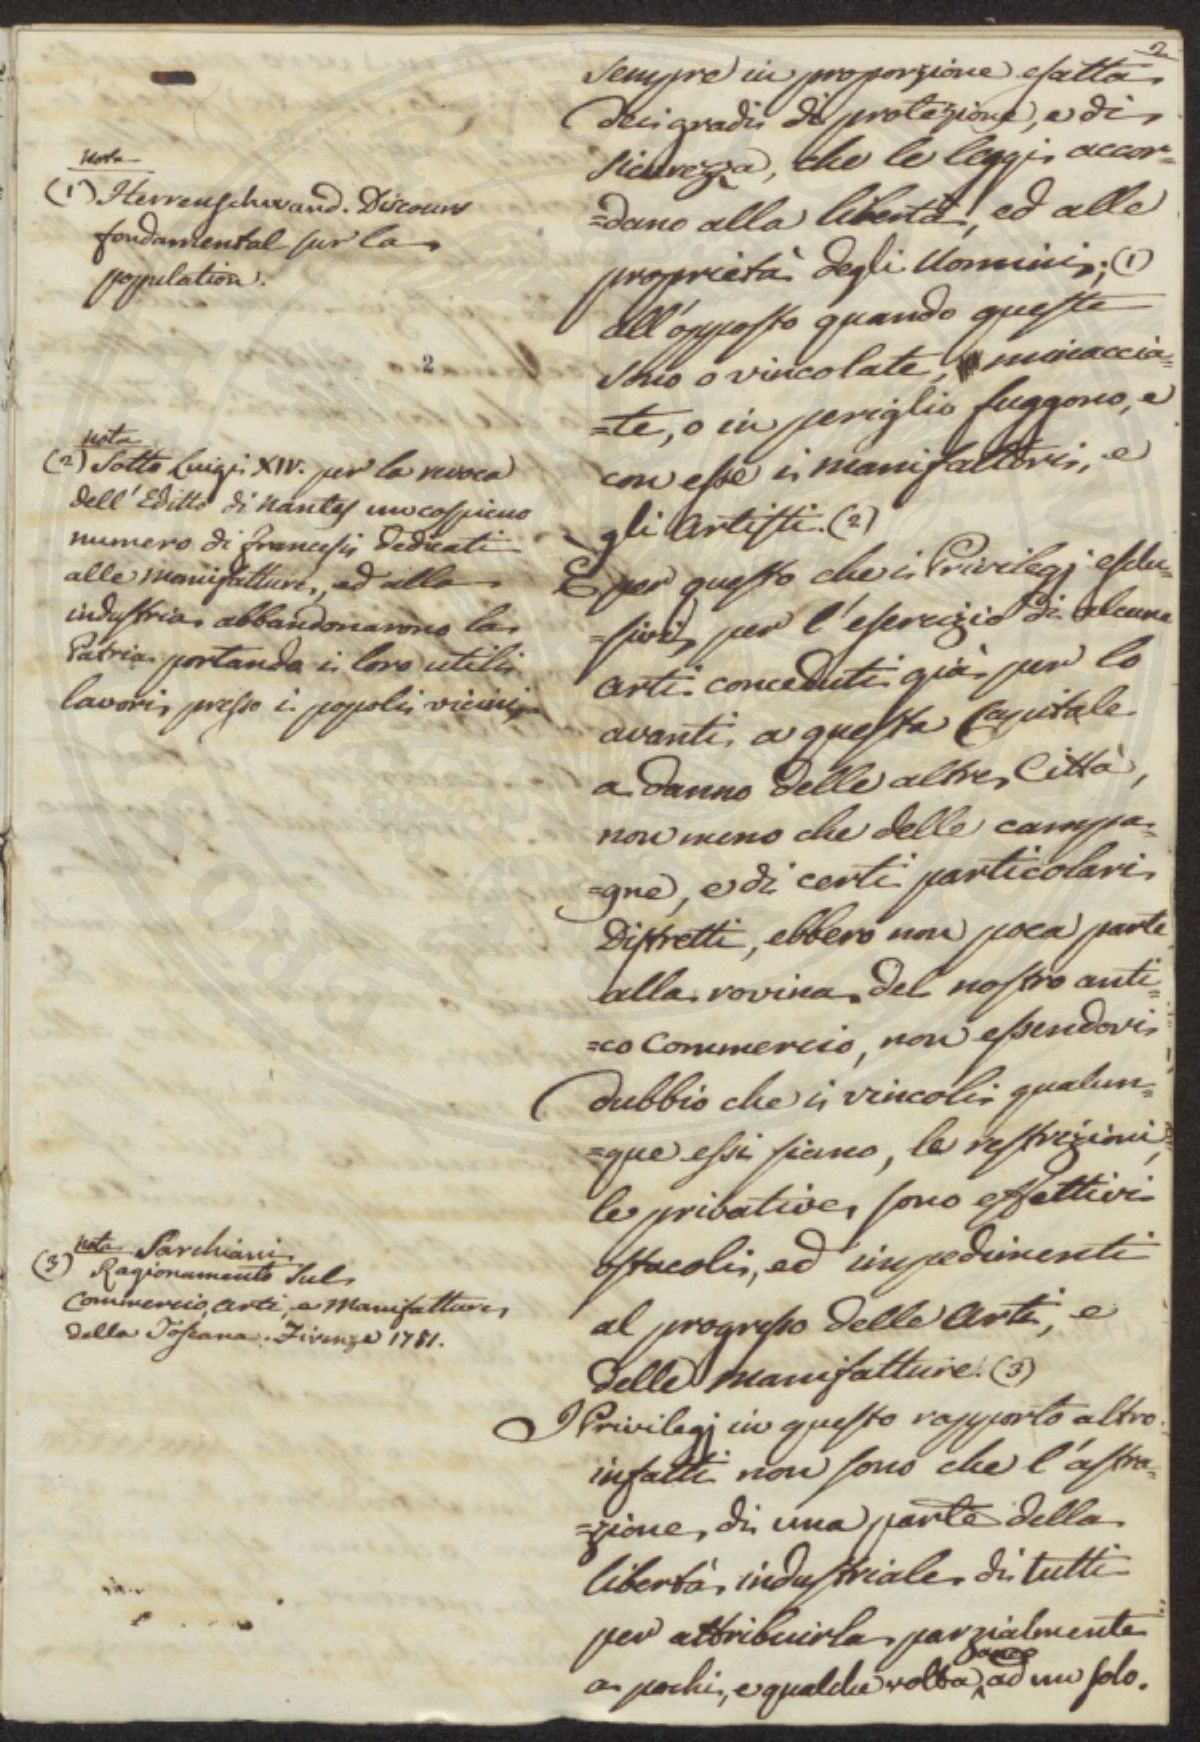 2
sempre in proporzione esatta
dei gradi di protezione, e di
sicurezza, che le leggi accor=
=dano alla libertà, ed alle
proprietà degli Uomini; (1)
all'opposto quando queste
sono o vincolate, minaccia=
=te, o in periglio fuggono, e
con esse i manifattori, e
gli Artisti. (2)
È per questo che i Privilegj esclu=
=sivi per l'esercizio di alcune
arti conceduti già per lo
avanti a questa Capitale
a danno delle altre Città,
non meno che delle campa=
=gne, e di certi particolari
Distretti, ebbero non poca parte
alla rovina del nostro anti=
=co Commercio, non essendovi
dubbio che i vincoli qualun=
=que essi siano, le restrizioni,
le privative, sono effettivi
ostacoli, ed impedimenti
al progresso delle Arti, e
delle Manifatture. (3)
I Privilegj in questo rapporto altro
infatti non sono che l'astra=
=zione di una parte della
libertà industriale di tutti
per attribuirla parzialmente
a pochi, e qualche volta anco ad un solo.
nota
(1) Herrenschwand. Discours
fondamental sur la
population.
2
nota
(2) Sotto Luigi XIV. per la revoca
dell'Editto di Nantes un cospicuo
numero di francesi dedicati
alle manifatture, ed alla
industria abbandonarono la
Patria portando i loro utili
lavori presso i popoli vicini.
nota
(3) Sarchiani
Ragionamento sul
Commercio, arti, e Manifatture
della Toscana. Firenze 1781.